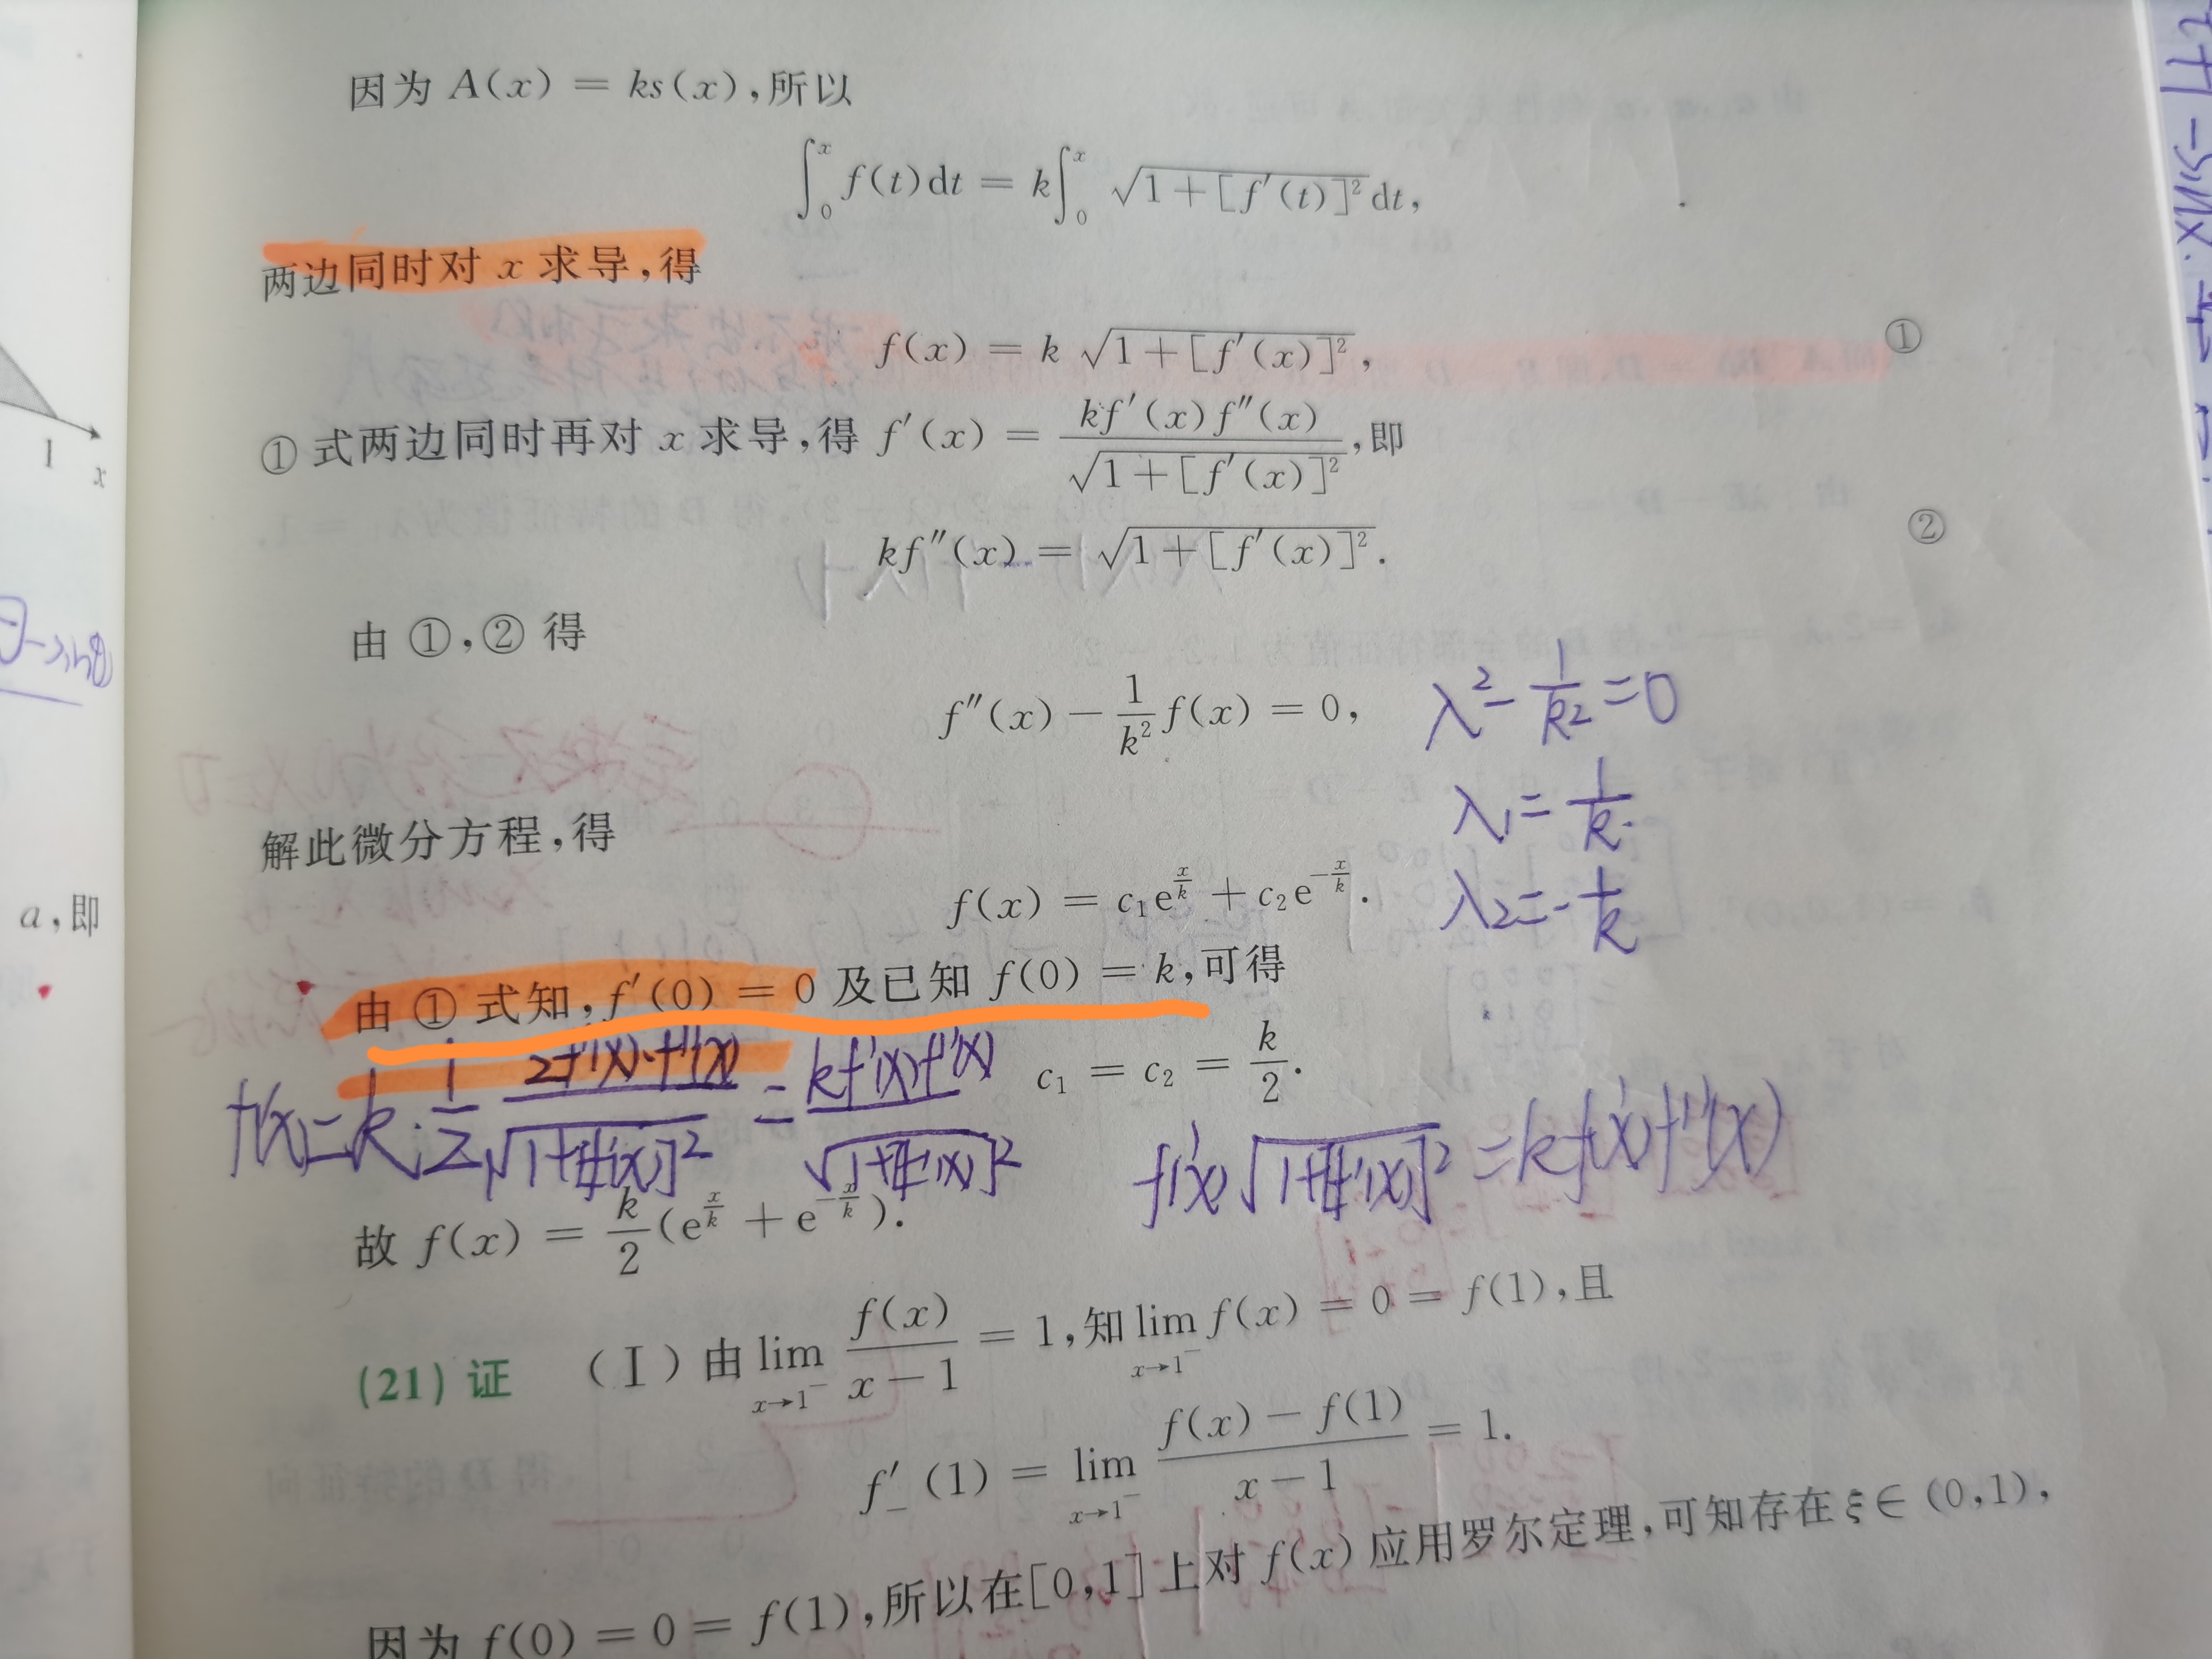 因为 A(x) = ks(x),所以
∫₀ˣ f(t)dt = k∫₀ˣ √(1+[f′(t)]²) dt,
两边同时对 x 求导,得
f(x) = k √(1+[f′(x)]²), ①
① 式两边同时再对 x 求导,得 f′(x) = kf′(x)f″(x) / √(1+[f′(x)]²),即
kf″(x) = √(1+[f′(x)]²). ②
由 ①,② 得
f″(x) − (1/k²) f(x) = 0, λ² − 1/k² = 0
λ₁ = 1/k.
解此微分方程,得
f(x) = c₁e^(x/k) + c₂e^(−x/k). λ₂ = −1/k
由 ① 式知,f′(0) = 0 及已知 f(0) = k,可得
c₁ = c₂ = k/2.
f′(x) = k·(1/2) 2f′(x)·f″(x) / √(1+[f′(x)]²) = kf′(x)f″(x) / √(1+[f′(x)]²)
f′(x)√(1+[f′(x)]²) = kf′(x)f″(x)
故 f(x) = (k/2)(e^(x/k) + e^(−x/k)).
(21) 证 (Ⅰ) 由 lim_(x→1⁻) f(x)/(x−1) = 1,知 lim_(x→1⁻) f(x) = 0 = f(1),且
f′₋(1) = lim_(x→1⁻) (f(x) − f(1))/(x − 1) = 1.
因为 f(0) = 0 = f(1),所以在[0,1]上对 f(x) 应用罗尔定理,可知存在 ξ∈(0,1),
1
x
θ−sinθ
a,即